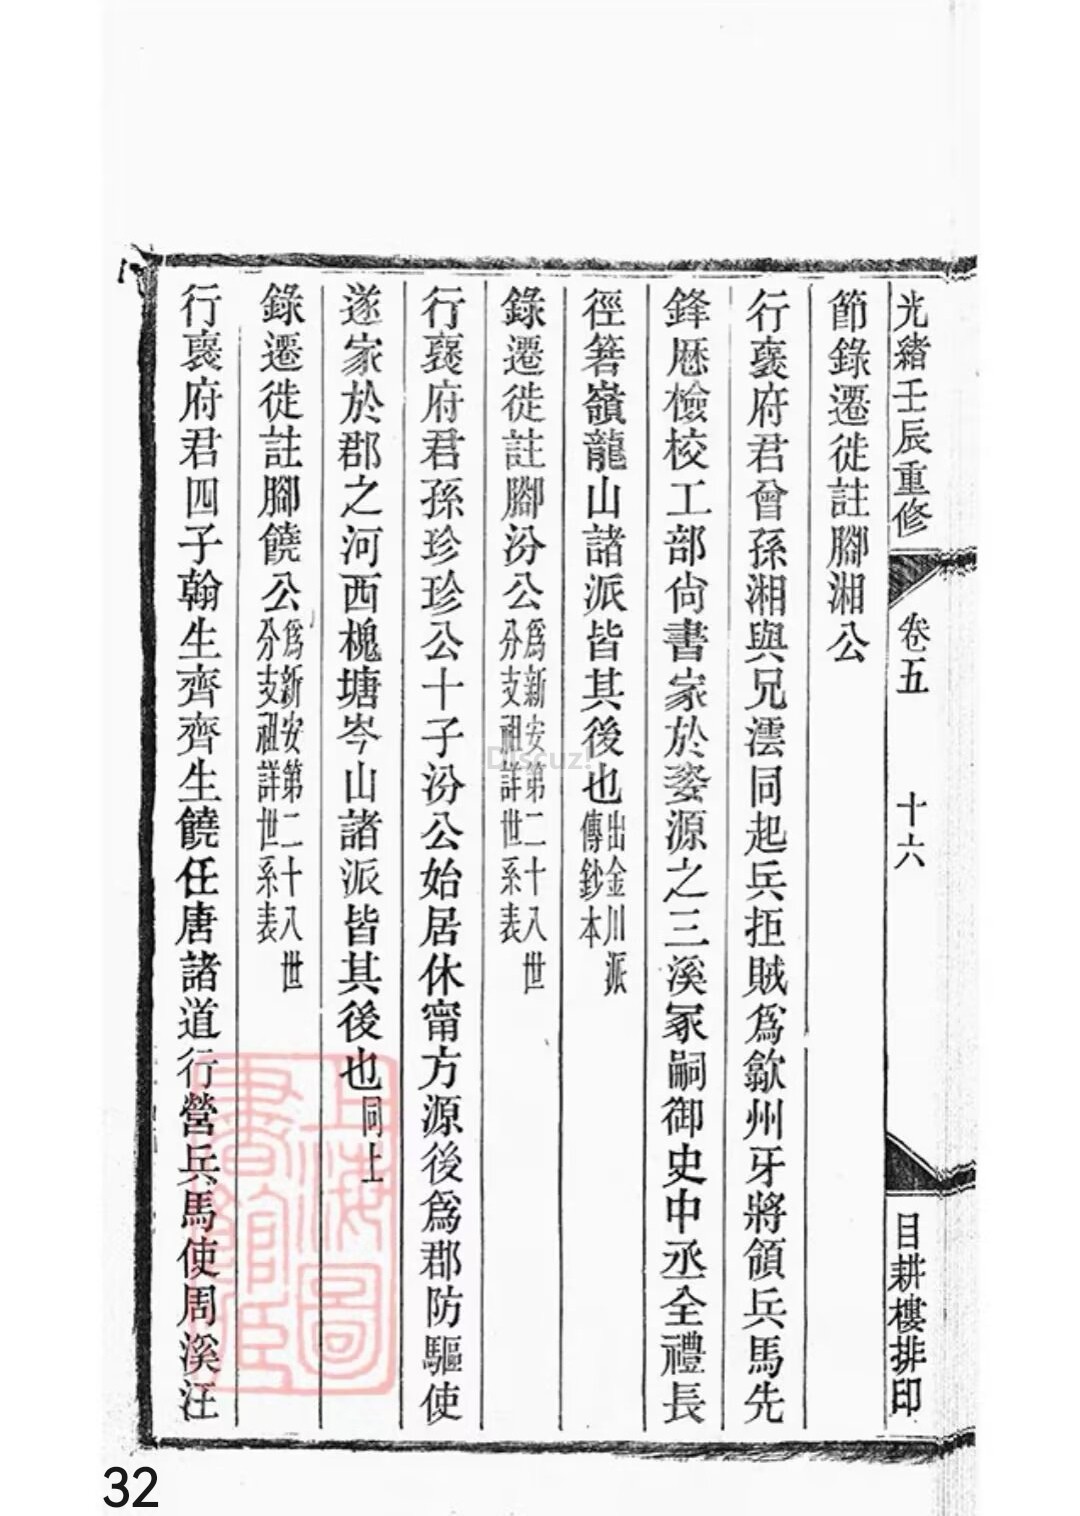 光緒壬辰重修
卷五
十六
目耕樓排印
節錄遷徙註腳湘公
行襃府君曾孫湘與兄澐同起兵拒賊為歙州牙將領兵馬先
鋒歷檢校工部尙書家於婺源之三溪冢嗣御史中丞全禮長
徑箬嶺龍山諸派皆其後也出金川派傳鈔本
錄遷徙註腳汾公為新安第二十八世分支祖詳世系表
行襃府君孫珍珍公十子汾公始居休甯方源後為郡防驅使
遂家於郡之河西槐塘岑山諸派皆其後也同上
錄遷徙註腳饒公為新安第二十八世分支祖詳世系表
行襃府君四子翰生齊齊生饒任唐諸道行營兵馬使周溪汪
上海圖書館藏
Discuz!
32